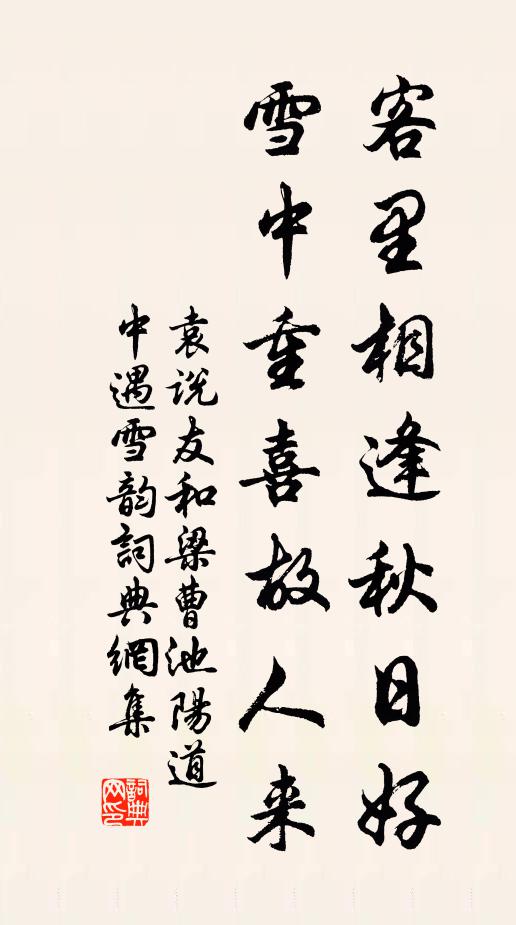 客里相逢秋日好
雪中重喜故人来
袁说友和梁曹池陽道
中遇雪韵詞典網集
詞典
网印